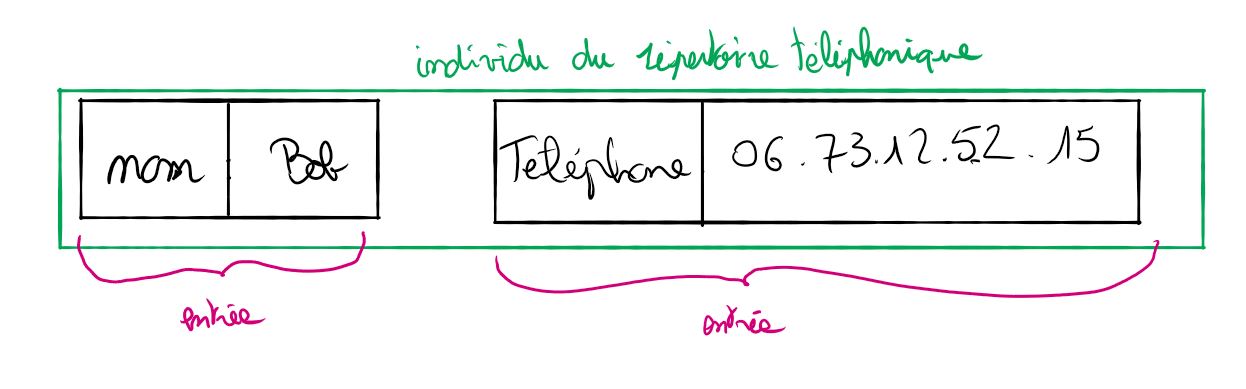 individu du répertoire téléphonique
nom Bob Teléphone 06.73.12.52.15
entrée entrée